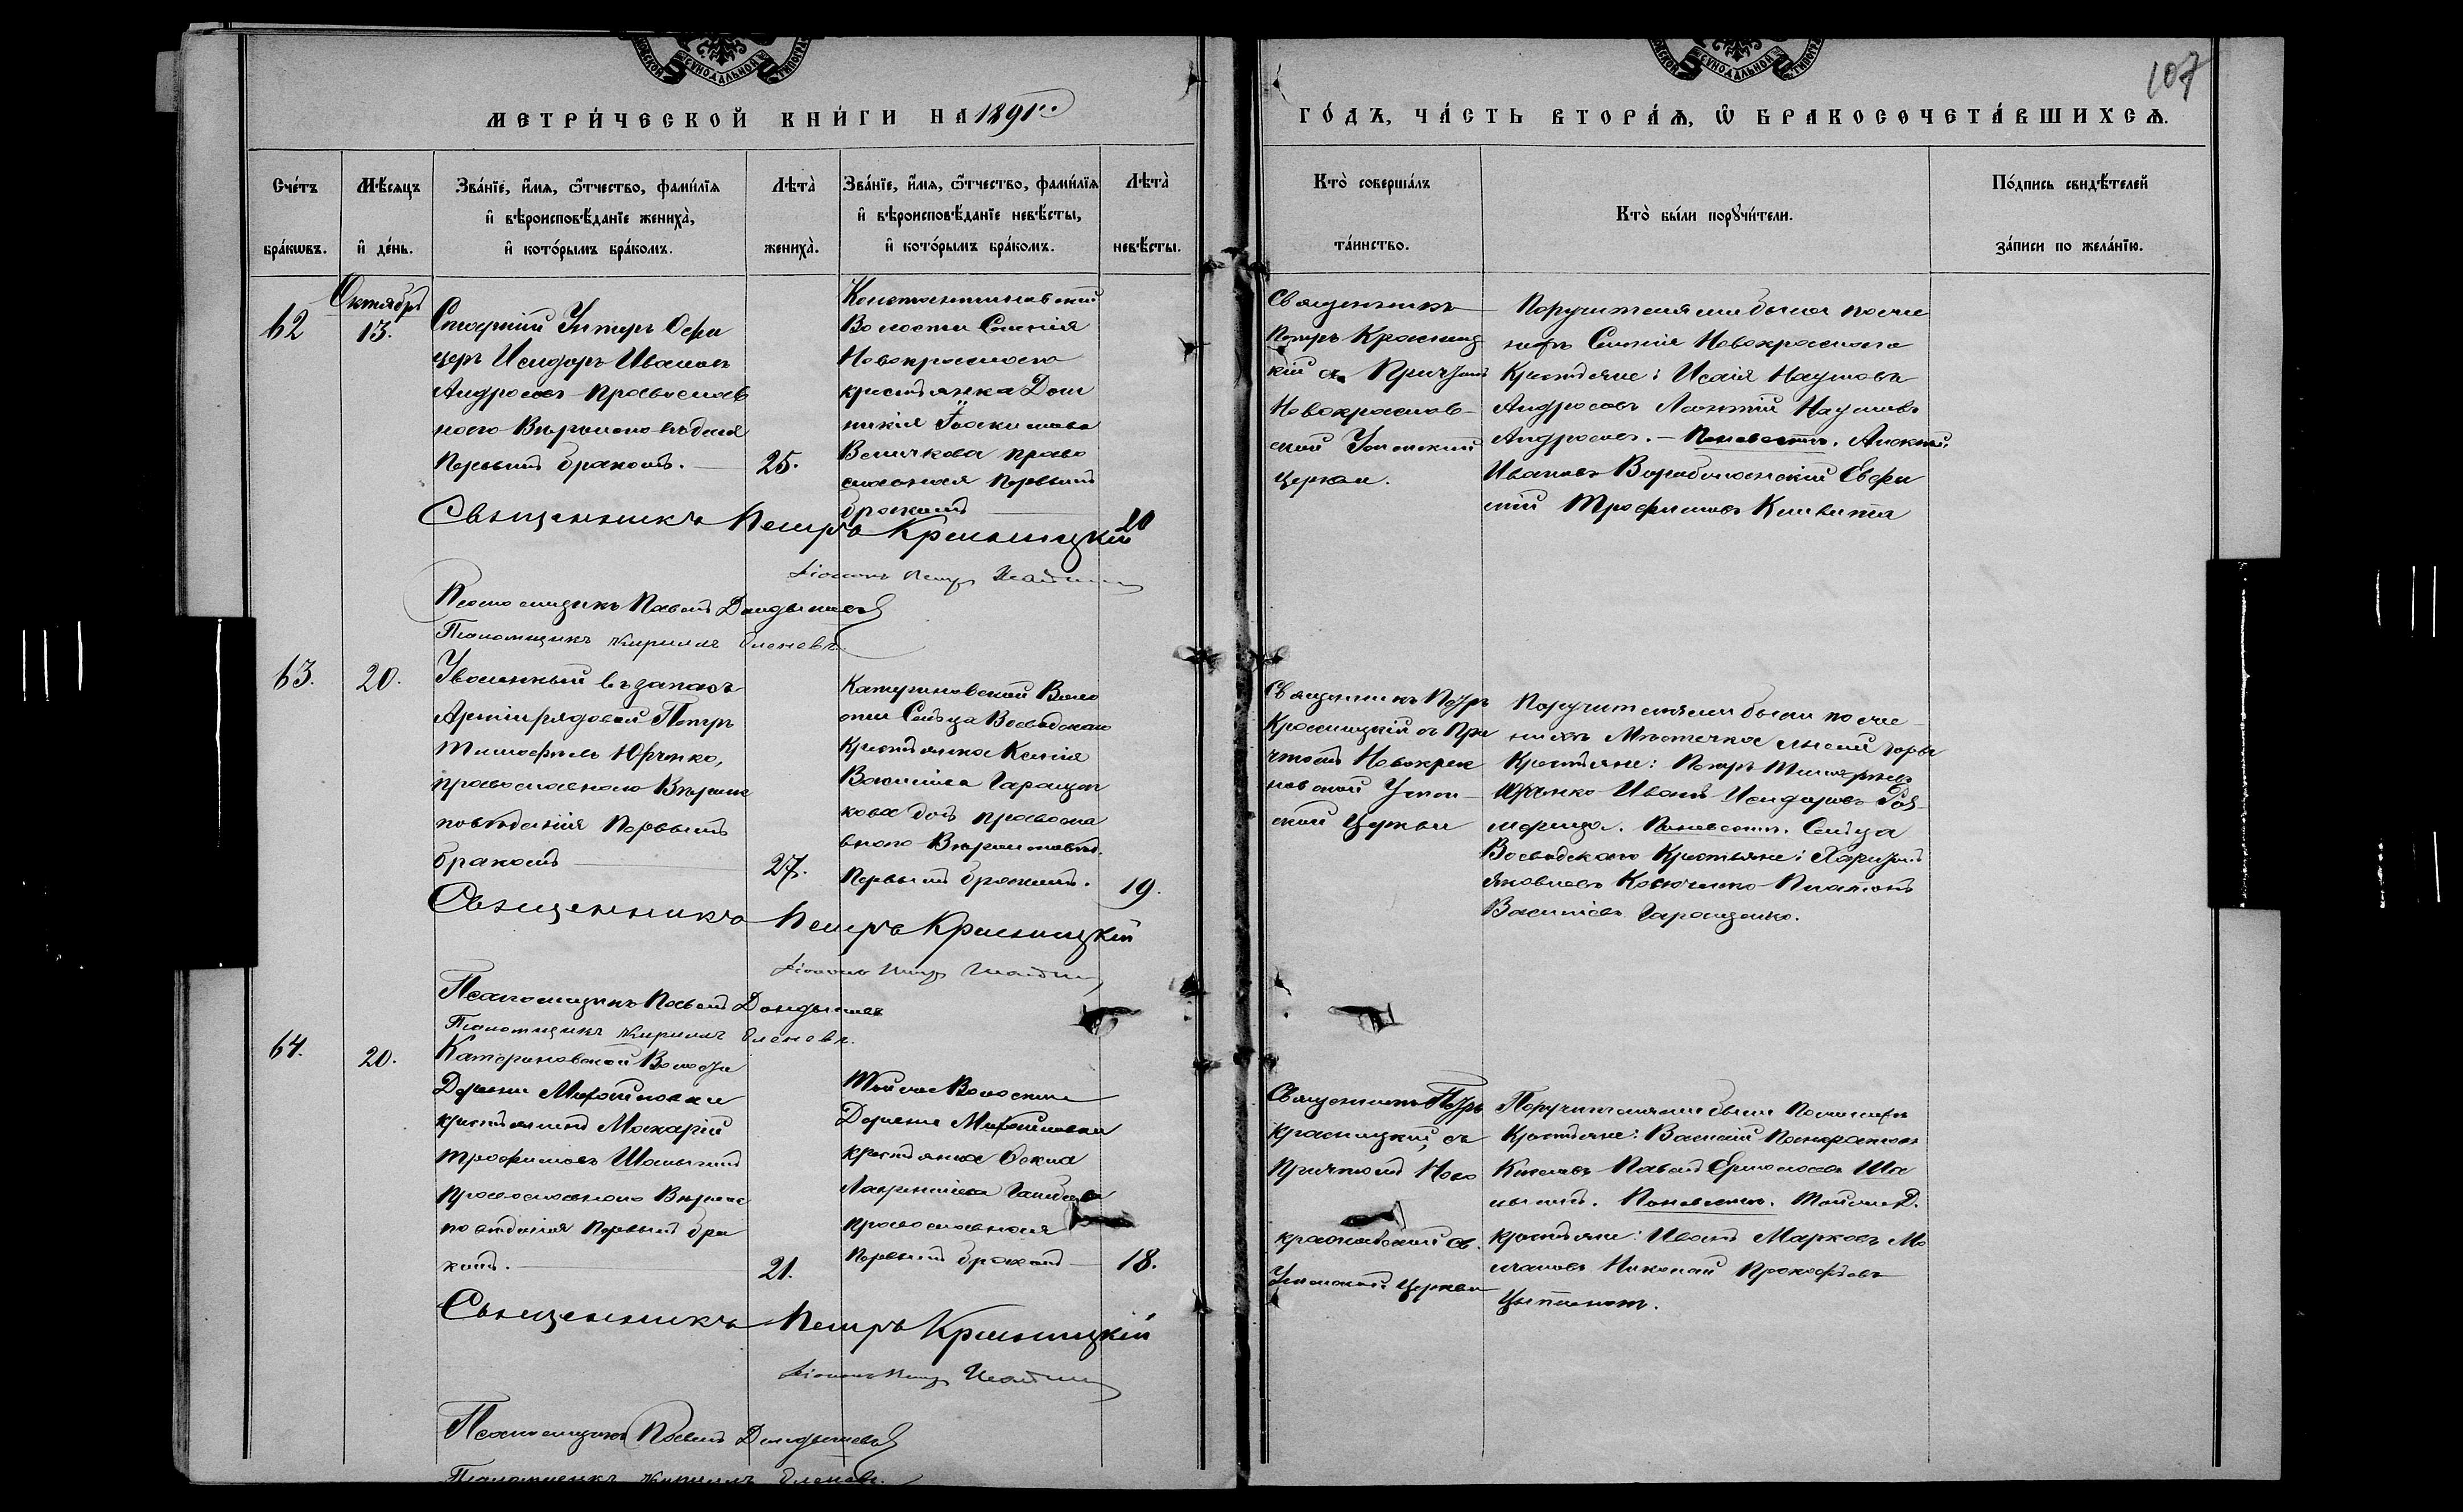 МЕТРИ́ЧЕСКОЙ КНИ́ГИ НА 1891 г.
ГО́ДЪ, ЧА́СТЬ ВТОРА́Ѧ, Ѡ҆ БРАКОСОЧЕТА́ВШИХСѦ.
107
Сче́тъ бра́кѡвъ.
Мѣ́сяцъ и҆ де́нь.
Зва́нїе, и҆́мя, ѻ҆́тчество, фами́лїя
и҆ вѣроисповѣ́данїе жениха̀,
и҆ кото́рымъ бра́комъ.
Лѣта̀ жениха̀.
Зва́нїе, и҆́мя, ѻ҆́тчество, фами́лїя
и҆ вѣроисповѣ́данїе невѣ́сты,
и҆ кото́рымъ бра́комъ.
Лѣта̀ невѣ́сты.
Кто̀ соверша́лъ
та́инство.
Кто̀ бы́ли порꙋчи́тели.
По́дпись свидѣ́телей
за́писи по жела́нїю.
62
Октябрь
13.
Старшій Унтеръ Офи
церъ Исидоръ Ивановъ
Андросовъ Православ
наго Вѣроисповѣданія
Первымъ бракомъ.
25.
Константиновской
Волости Селенія
Новокраснаго
крестьянка Дом
никія Іоакимова
Величкова право
славная Первымъ
бракомъ
20
Священникъ
Петръ Красниц
кій съ Причтомъ
Новокраснов-
ской Успенской
церкви.
Поручителями были по же
нихѣ Селенія Новокраснаго
Крестьяне: Исаія Наумовъ
Андросовъ Леонтій Наумовъ
Андросовъ. - По невестѣ. Алексѣй
Ивановъ Евфи
мій Трофимовъ
Священникъ Петръ Красницкій
Діаконъ Петръ
Псаломщикъ Павелъ Дандышевъ
Псаломщикъ Кириллъ Еленевъ.
63.
20.
Уволенный въ запасъ
Арміи рядовой Петръ
Тимофѣевъ Юрченко,
православнаго Вѣроис
повѣданія Первымъ
бракомъ
27.
Катериновской Воло
сти Сельца Воеводскаго
Крестьянка Ксенія
Васильева Гаращен
кова дочь правосла
внаго Вѣроисповѣд.
Первымъ бракомъ.
19.
Священникъ Петръ
Красницкій съ При
чтомъ Новокрас
новской Успен-
ской Церкви
Поручителями были по же
нихѣ Мѣстечка Лысой Горы
Крестьяне: Петръ Тимофѣевъ
Юрченко Иванъ Исидоровъ
По невестѣ. Сельца
Воеводскаго Крестьяне: Харитонъ
Яковлевъ Костюченко Платонъ
Васильевъ Гаращенко.
Священникъ Петръ Красницкій
Діаконъ Петръ
Псаломщикъ Павелъ Дандышевъ
Псаломщикъ Кириллъ Еленевъ.
64.
20.
Катериновской Волости
Деревни Михайловки
крестьянинъ Макарій
Трофимовъ
Православнаго Вѣроис
повѣданія Первымъ бра
комъ.
21.
Той же Волости
Деревни Михайловки
крестьянка Фекла
Лаврентіева
православная
Первымъ бракомъ
18.
Священникъ Петръ
Красницкій, съ
Причтомъ Ново
красновской св.
Успенской Церкви
Поручителями были По женихѣ
Крестьяне: Василій Панкратовъ
Павелъ Ермолаевъ
По невестѣ. Той же Д.
крестьяне: Иванъ Марковъ
Николай Прокофьевъ
Священникъ Петръ Красницкій
Діаконъ Петръ
Псаломщикъ Павелъ Дандышевъ
Псаломщикъ Кириллъ Еленевъ.